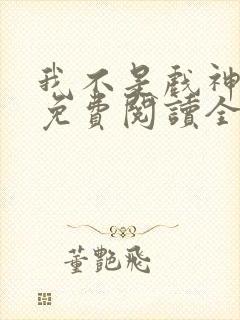 我不是戲神
免費閱讀全
董艷飛